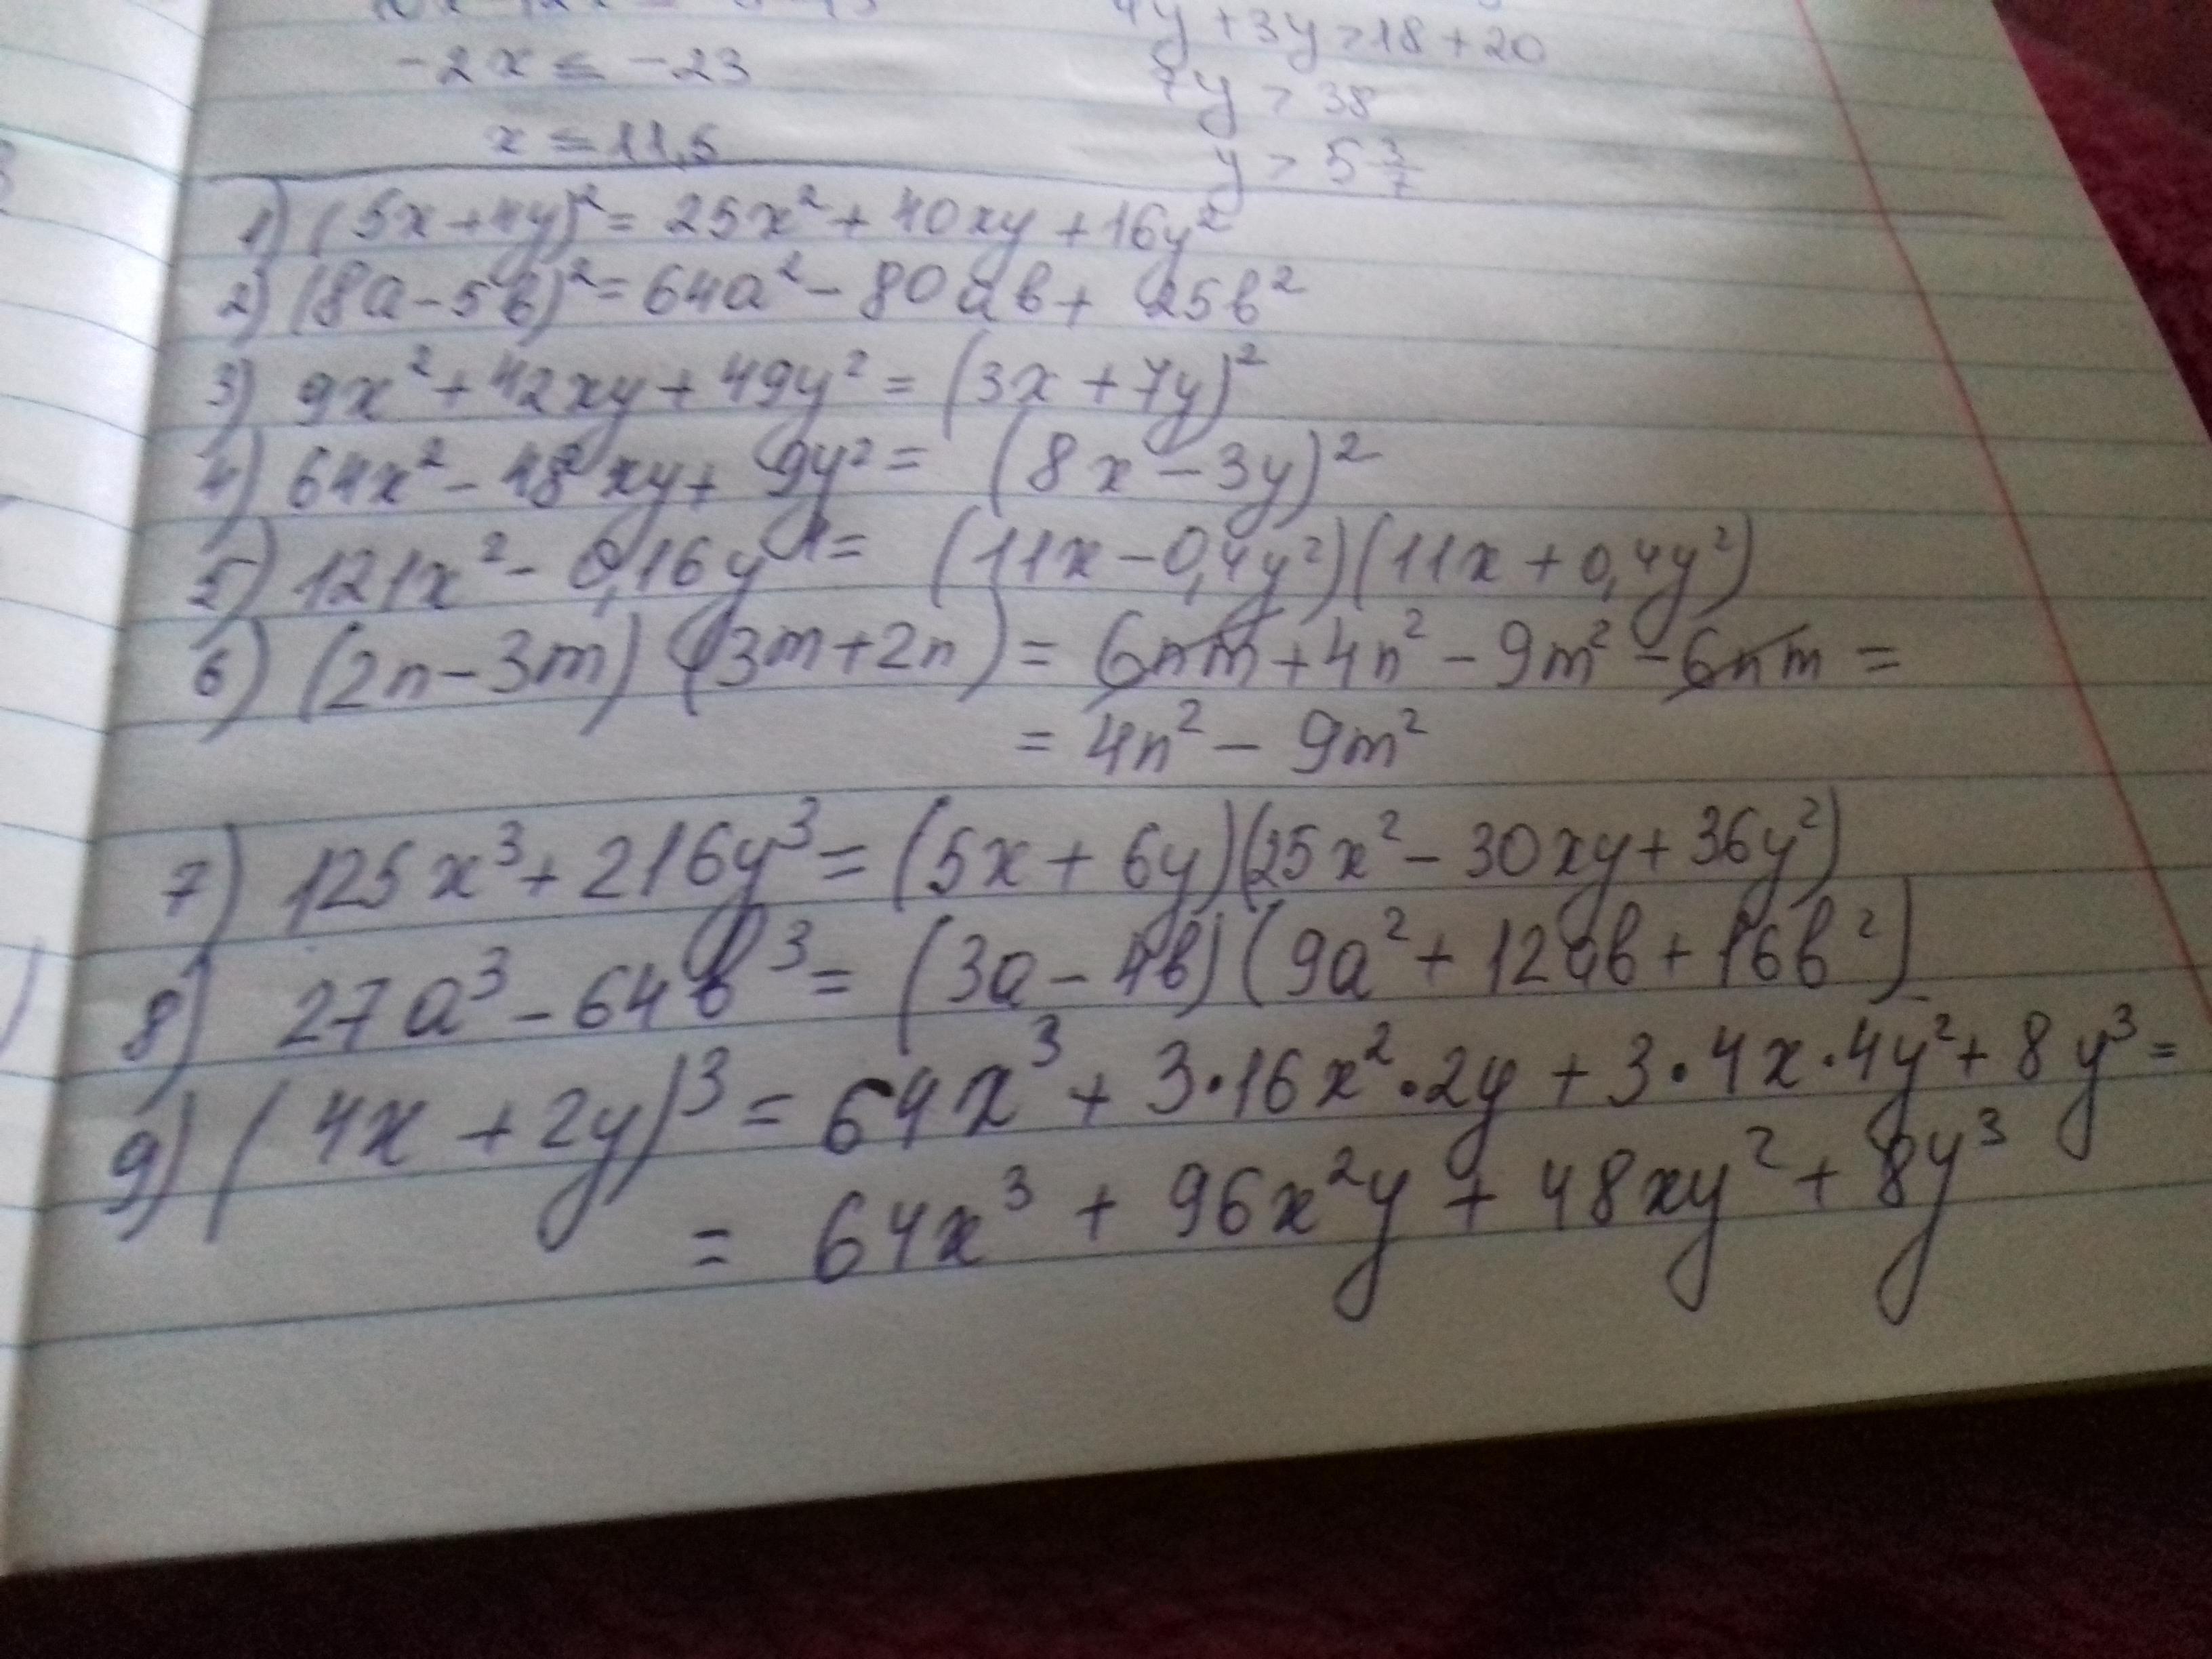 -2x ≤ -23
x ≤ 11,5
4y + 3y > 18 + 20
7y > 38
y > 5 3/7
1) (5x + 4y)² = 25x² + 40xy + 16y²
2) (8a - 5b)² = 64a² - 80ab + 25b²
3) 9x² + 42xy + 49y² = (3x + 7y)²
4) 64x² - 48xy + 9y² = (8x - 3y)²
5) 121x² - 0,16y⁴ = (11x - 0,4y²)(11x + 0,4y²)
6) (2n - 3m) (3m + 2n) = 6nm + 4n² - 9m² - 6nm =
= 4n² - 9m²
7) 125x³ + 216y³ = (5x + 6y)(25x² - 30xy + 36y²)
8) 27a³ - 64b³ = (3a - 4b)(9a² + 12ab + 16b²)
9) (4x + 2y)³ = 64x³ + 3·16x²·2y + 3·4x·4y² + 8y³ =
= 64x³ + 96x²y + 48xy² + 8y³